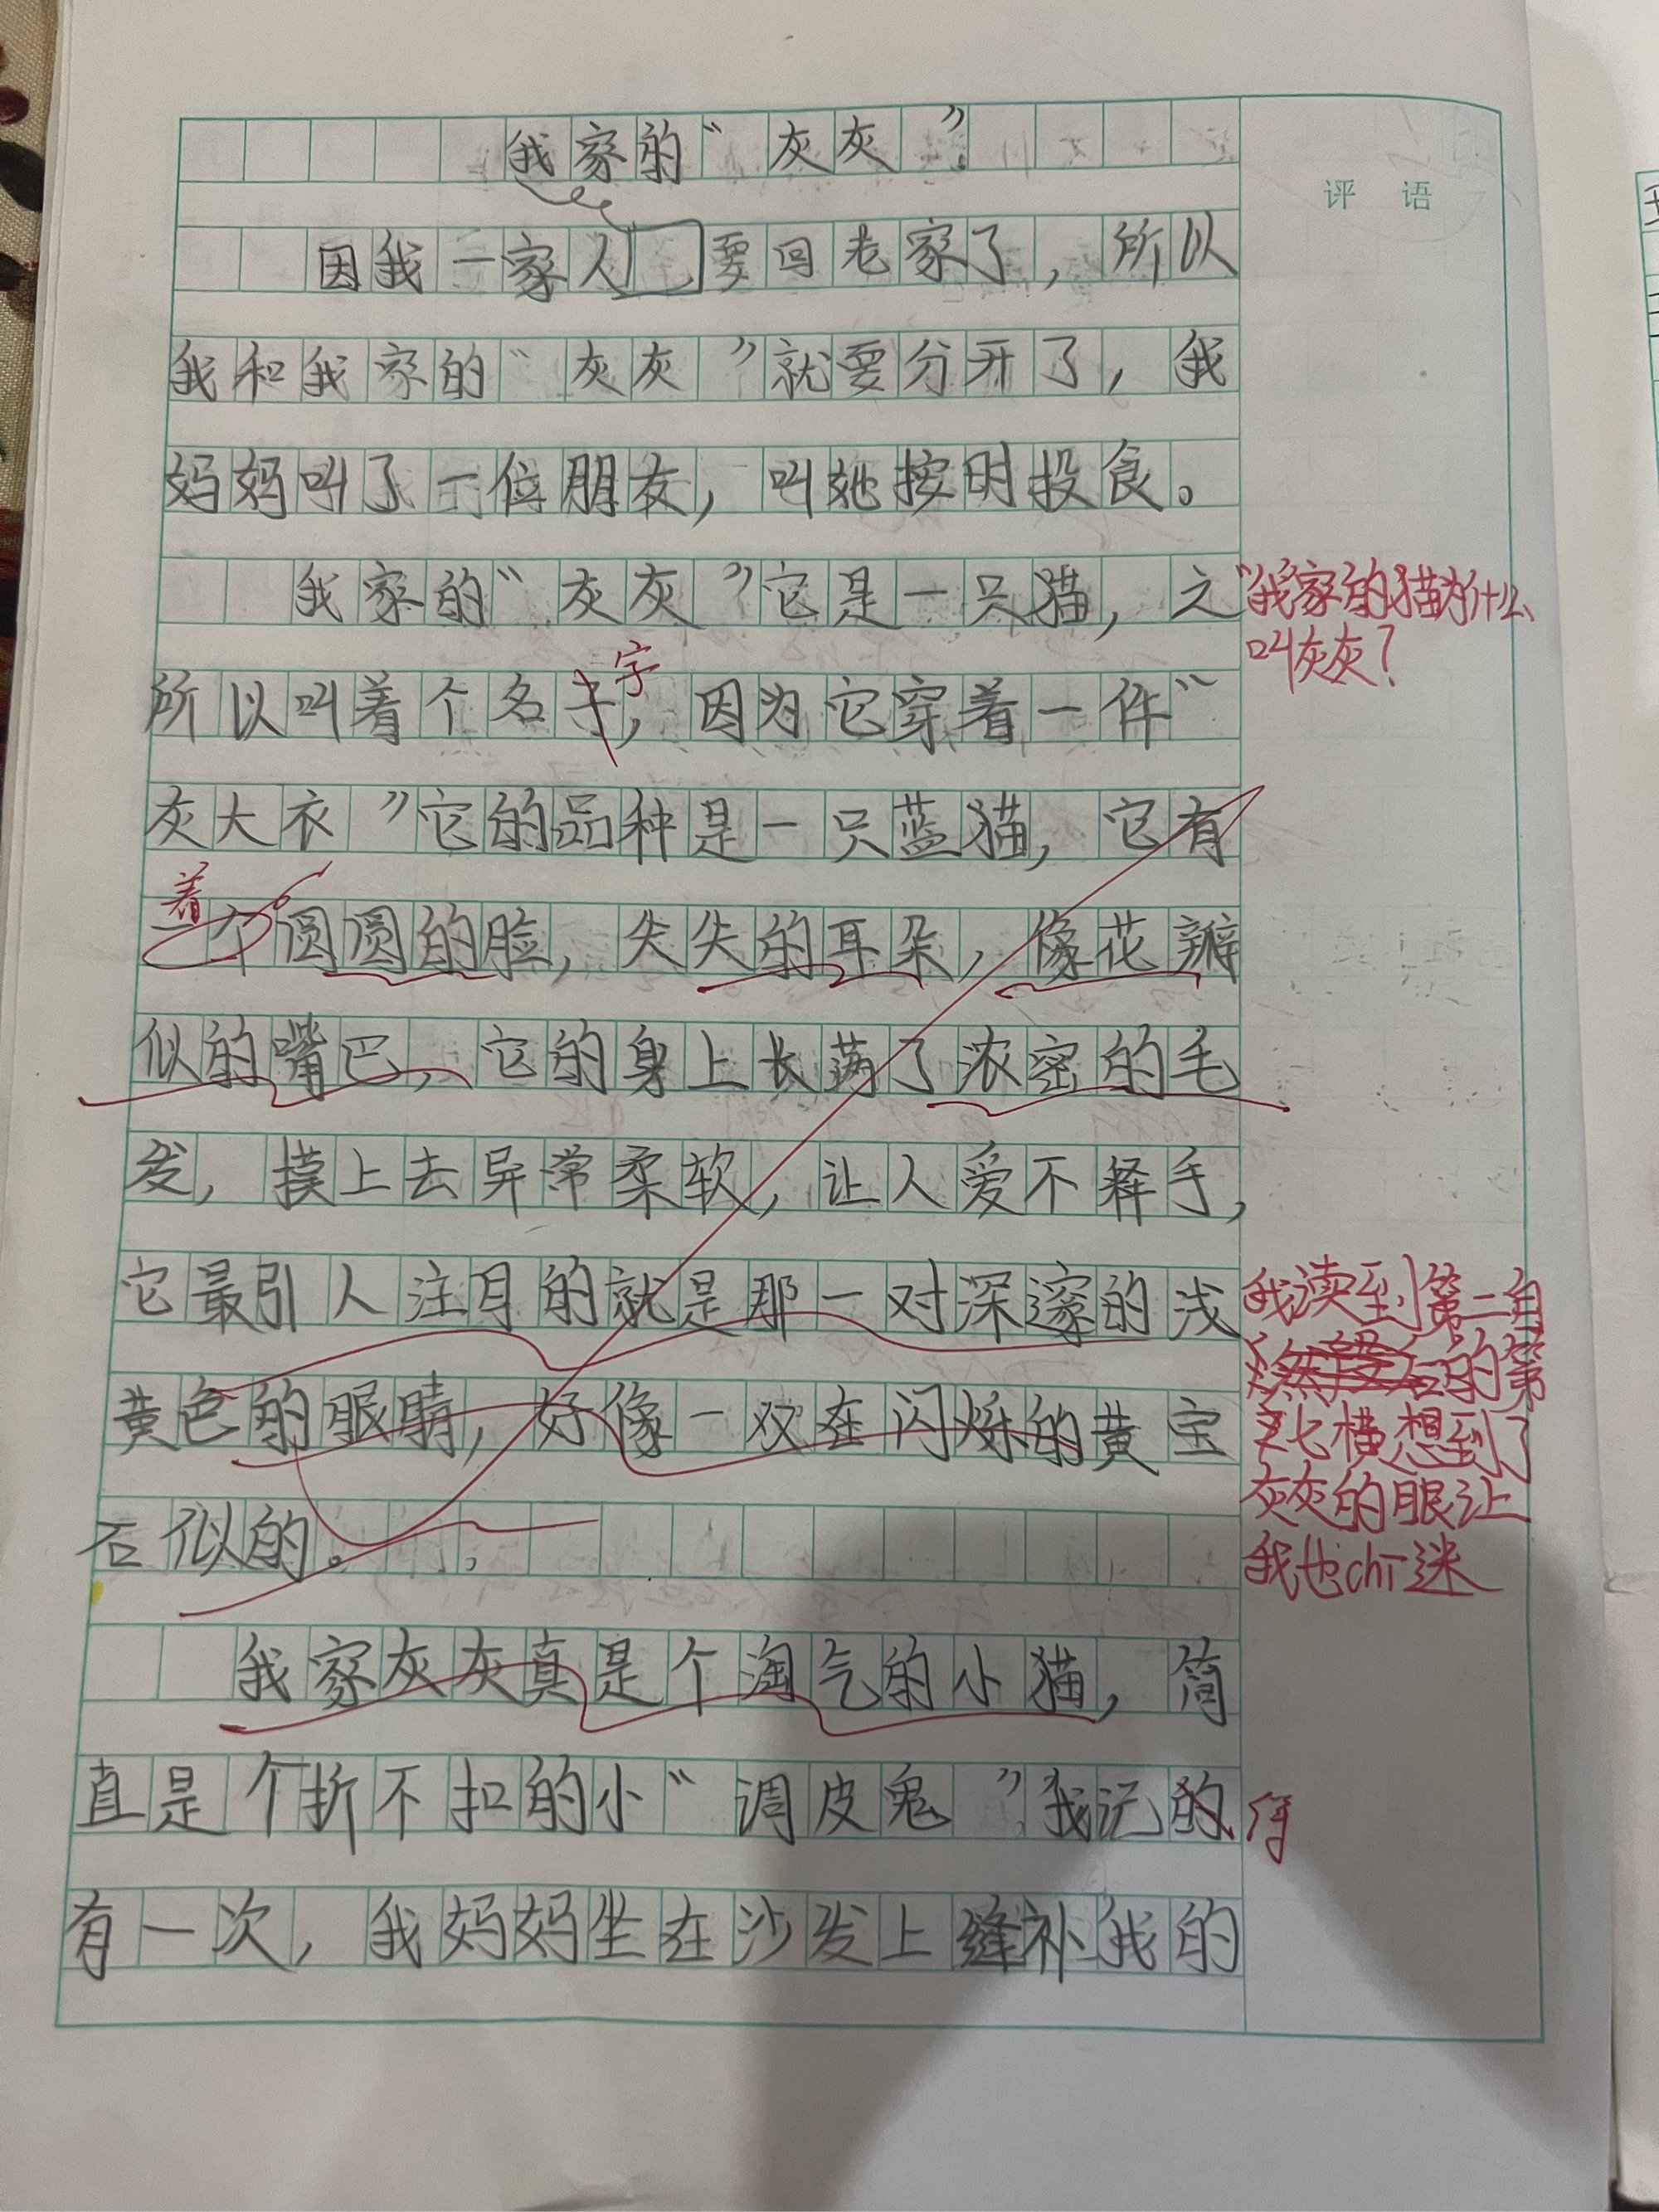 我家的“灰灰”
评 语
因我一家人要回老家了，所以
我和我家的“灰灰”就要分开了，我
妈妈叫了一位朋友，叫她按时投食。
我家的“灰灰”它是一只猫，之
“我家的猫为什么
叫灰灰？
所以叫着个名字，因为它穿着一件“
灰大衣”它的品种是一只蓝猫，它有
着
个圆圆的脸，尖尖的耳朵，像花瓣
似的嘴巴，它的身上长满了浓密的毛
发，摸上去异常柔软，让人爱不释手，
它最引人注目的就是那一对深邃的浅
黄色的眼睛，好像一双在闪烁的黄宝
石似的。
我读到第二自
的第
七横想到了
灰灰的眼让
我也chī迷
我家灰灰真是个淘气的小猫，简
直是个折不扣的小“调皮鬼”我记的
得
有一次，我妈妈坐在沙发上缝补我的